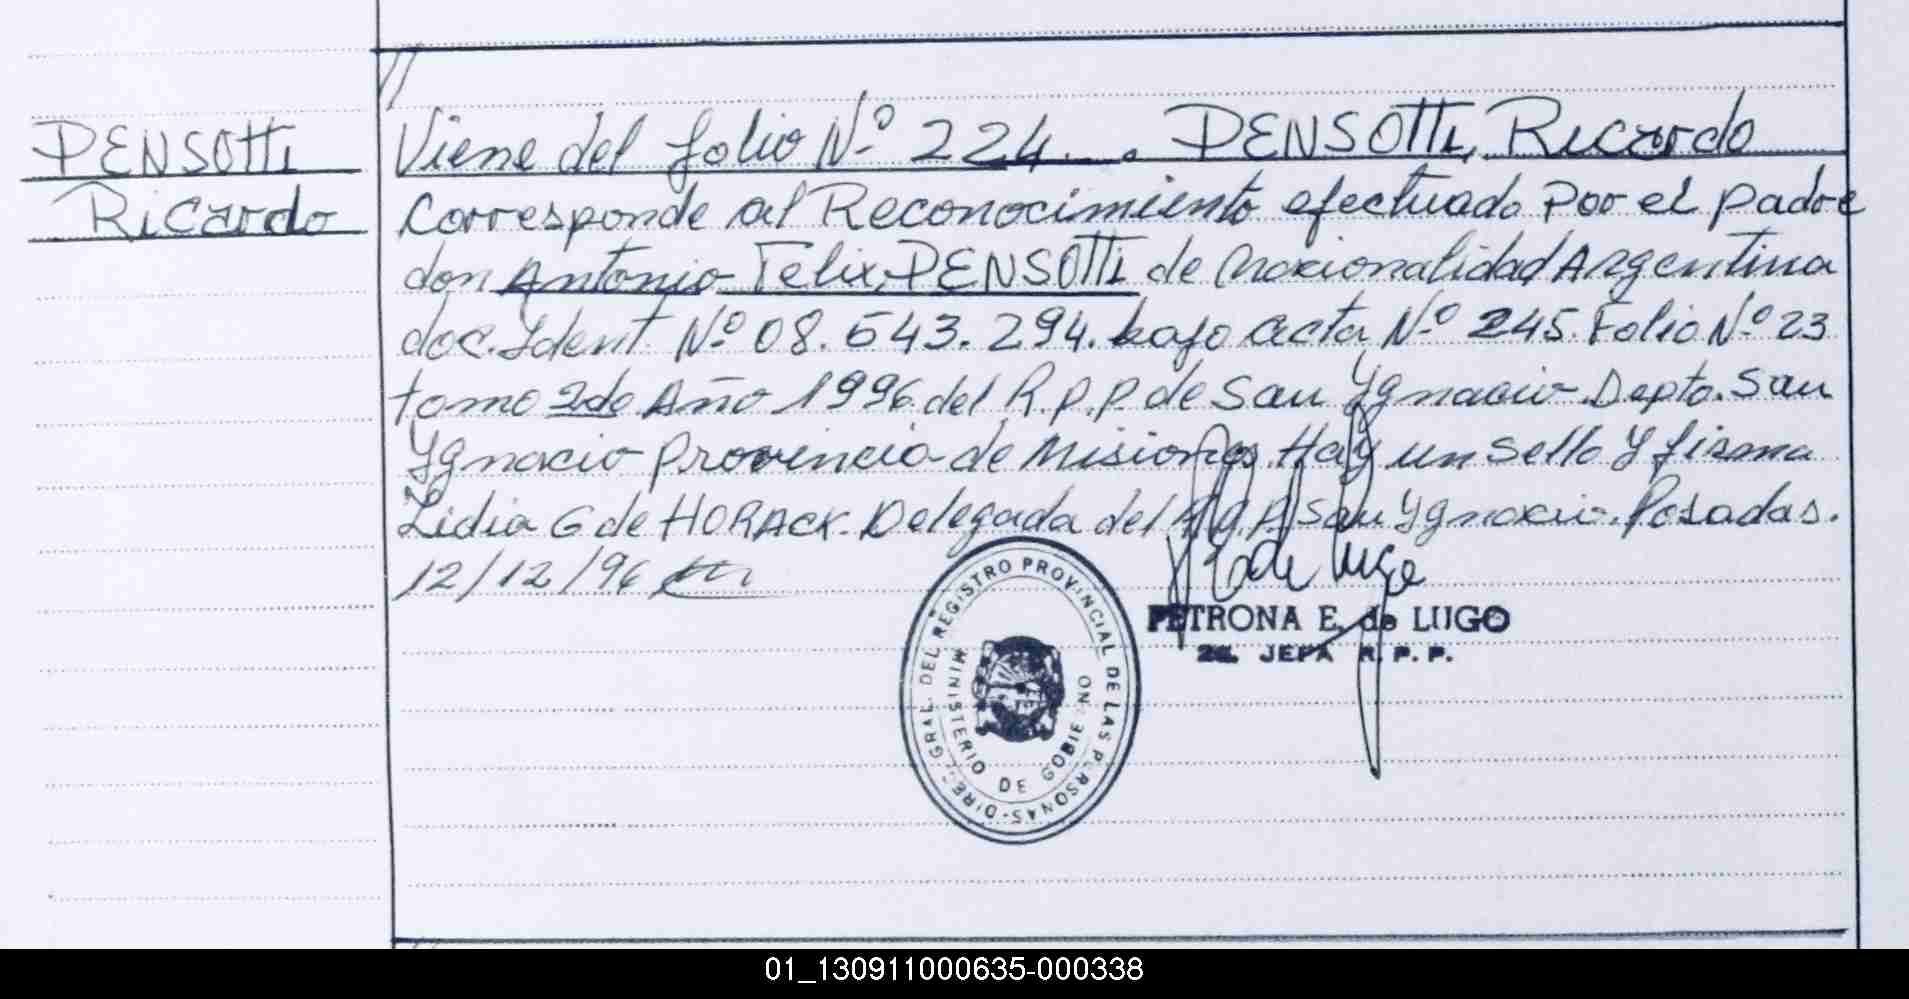 PENSOTTI
Ricardo
//
Viene del folio Nº 224. PENSOTTI, Ricardo
Corresponde al Reconocimiento efectuado Por el padre
don Antonio Felix PENSOTTI de Nacionalidad Argentina
doc. Ident. Nº 08.543.294. bajo acta Nº 245. Folio Nº 23
tomo 2do Año 1996 del R.P.P. de San Ygnacio Depto. San
Ygnacio Provincia de Misiones. Hay un sello Y firma
Lidia G de HORACK. Delegada del San Ygnacio. Posadas.
12/12/96
E de Lugo
PETRONA E. de LUGO
2a. JEFA R.P.P.
DIREC. GRAL. DEL REGISTRO PROVINCIAL DE LAS PERSONAS-
MINISTERIO DE GOBIERNO
01_130911000635-000338